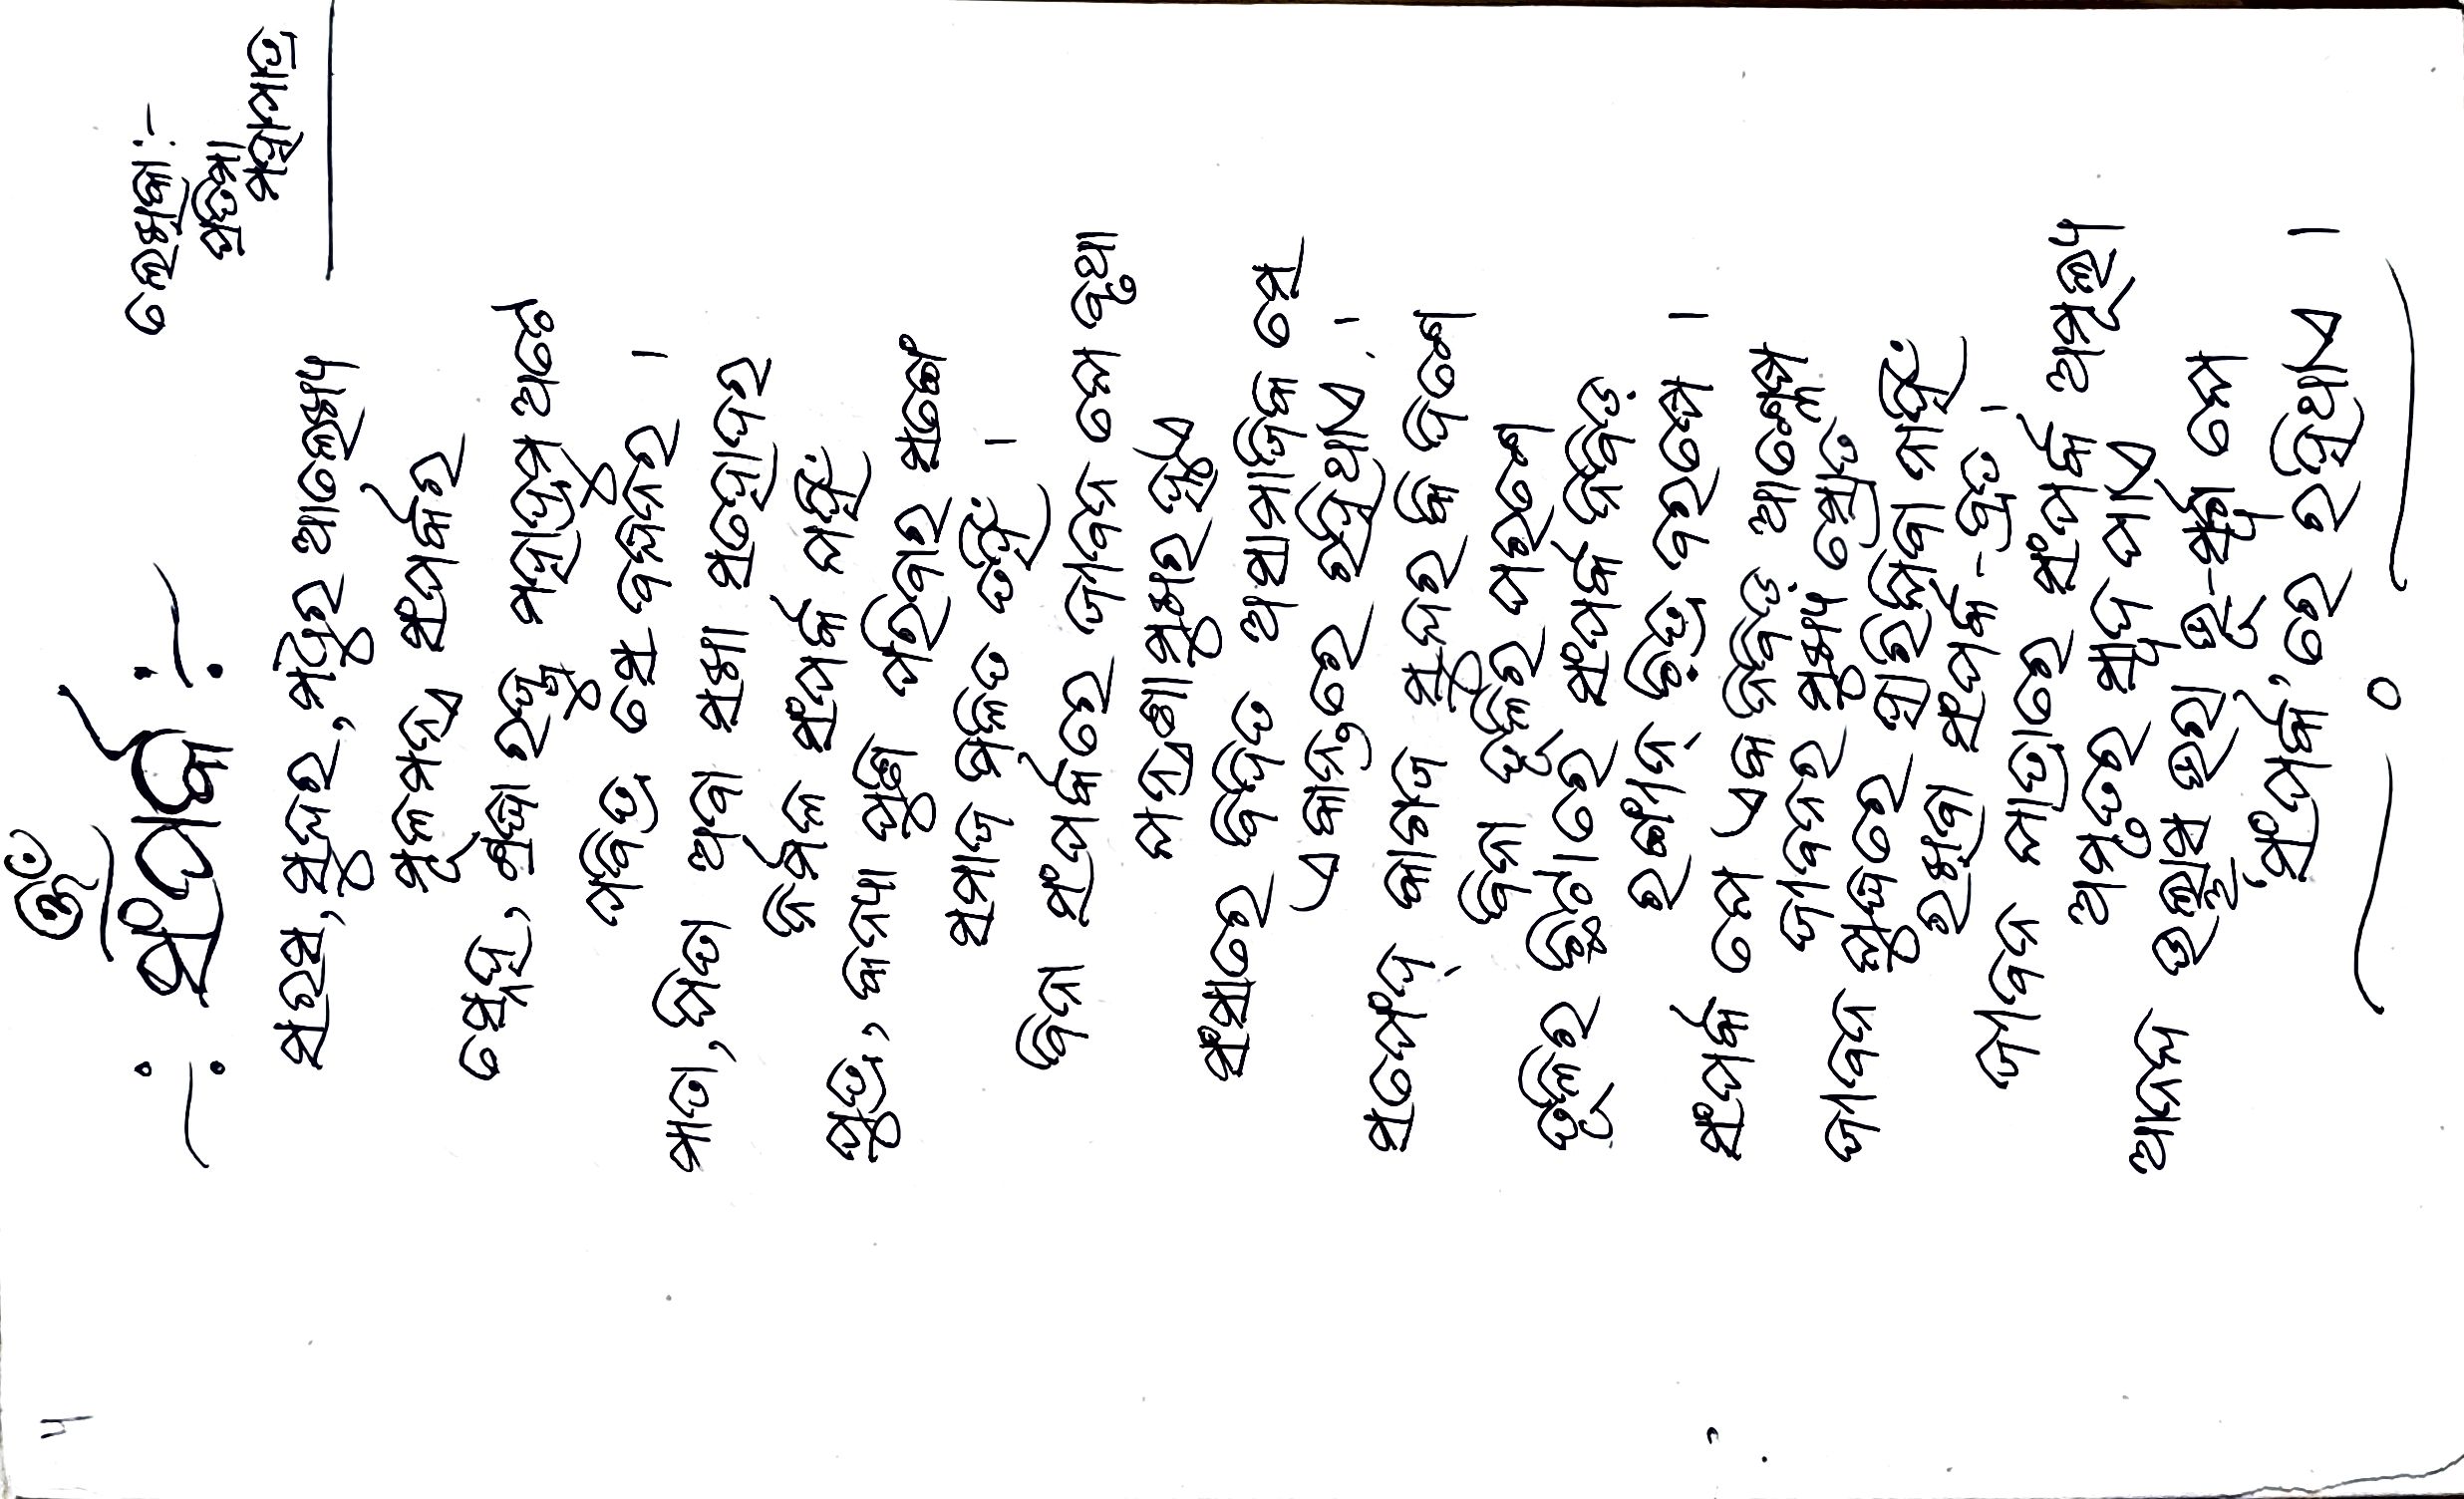 ୪
ॐ
-: ସଂପର୍କ :-
ଲେଖିକା :-
ପ୍ରତିମା
ମହାପାତ୍ର
ସରସ, ସୁନ୍ଦର, ମଧୁର ଆଲେଖ୍ୟ
ମୂଳମନ୍ତ୍ର ସଂପର୍କର
ସ୍ନେହ, ଶ୍ରଦ୍ଧା ରଜ୍ଜୁ ମହାଦ୍ରୁମ ଅଟେ
ପବିତ୍ର ସେ ବନ୍ଧନର ।
ମାତା, ପିତା ଅବା ସଖା ସହୋଦର
ନିର୍ମଳ ସଂପର୍କ ଯହିଁ
ପୁତ୍ର, କନ୍ୟା ପୁଣି ପରିବାର ସଙ୍ଗେ
ସମାଜ ମିଳିତ ତହିଁ ।
ବିନା ସଂପର୍କରେ ଜୀବନ ଯେ ବୃଥା
ଯନ୍ତ୍ରଣା ମୁଖର ହୁଏ
ସଂସାରେ ବିଦିତ ଅସାମାଜିକ ସେ
ଏକାନ୍ତରେ ରହିଥାଏ ।
ସଫେଦ୍ କାଗଜ ସୁନ୍ଦର କି ଦିଶେ
ବିନା ତୂଳିର ପରଶେ
ତୂଳିର ଛିଟାରେ ସଂପର୍କ ନିବିଡ଼
ରଙ୍ଗୀନ୍ ଚିତ୍ର ବରଷେ ।
ସଂପର୍କ ଯେ ଏକ ନିବିଡ଼ ଆଶ୍ଳେଷ
ଜୀବନର ମୁଖ୍ୟ ସ୍ରୋତ
ଜୀବନ ଯୁଦ୍ଧରେ ହାରିଯିବା ନାହିଁ
ରଖିବା ସଂପର୍କ-ବ୍ରତ ।
ଜୀବନ ଯାତ୍ରାରେ ସଂପର୍କ ଅମୂଲ୍ୟ
ଅମୃତର ସ୍ୱାଦ ପାଏ
ଆନନ୍ଦ ଉଲ୍ଲାସ ଭରା ଭୂ-ସ୍ୱର୍ଗ ଯେ
'ସଂପର୍କ' ରେ ରହିଥାଏ ।